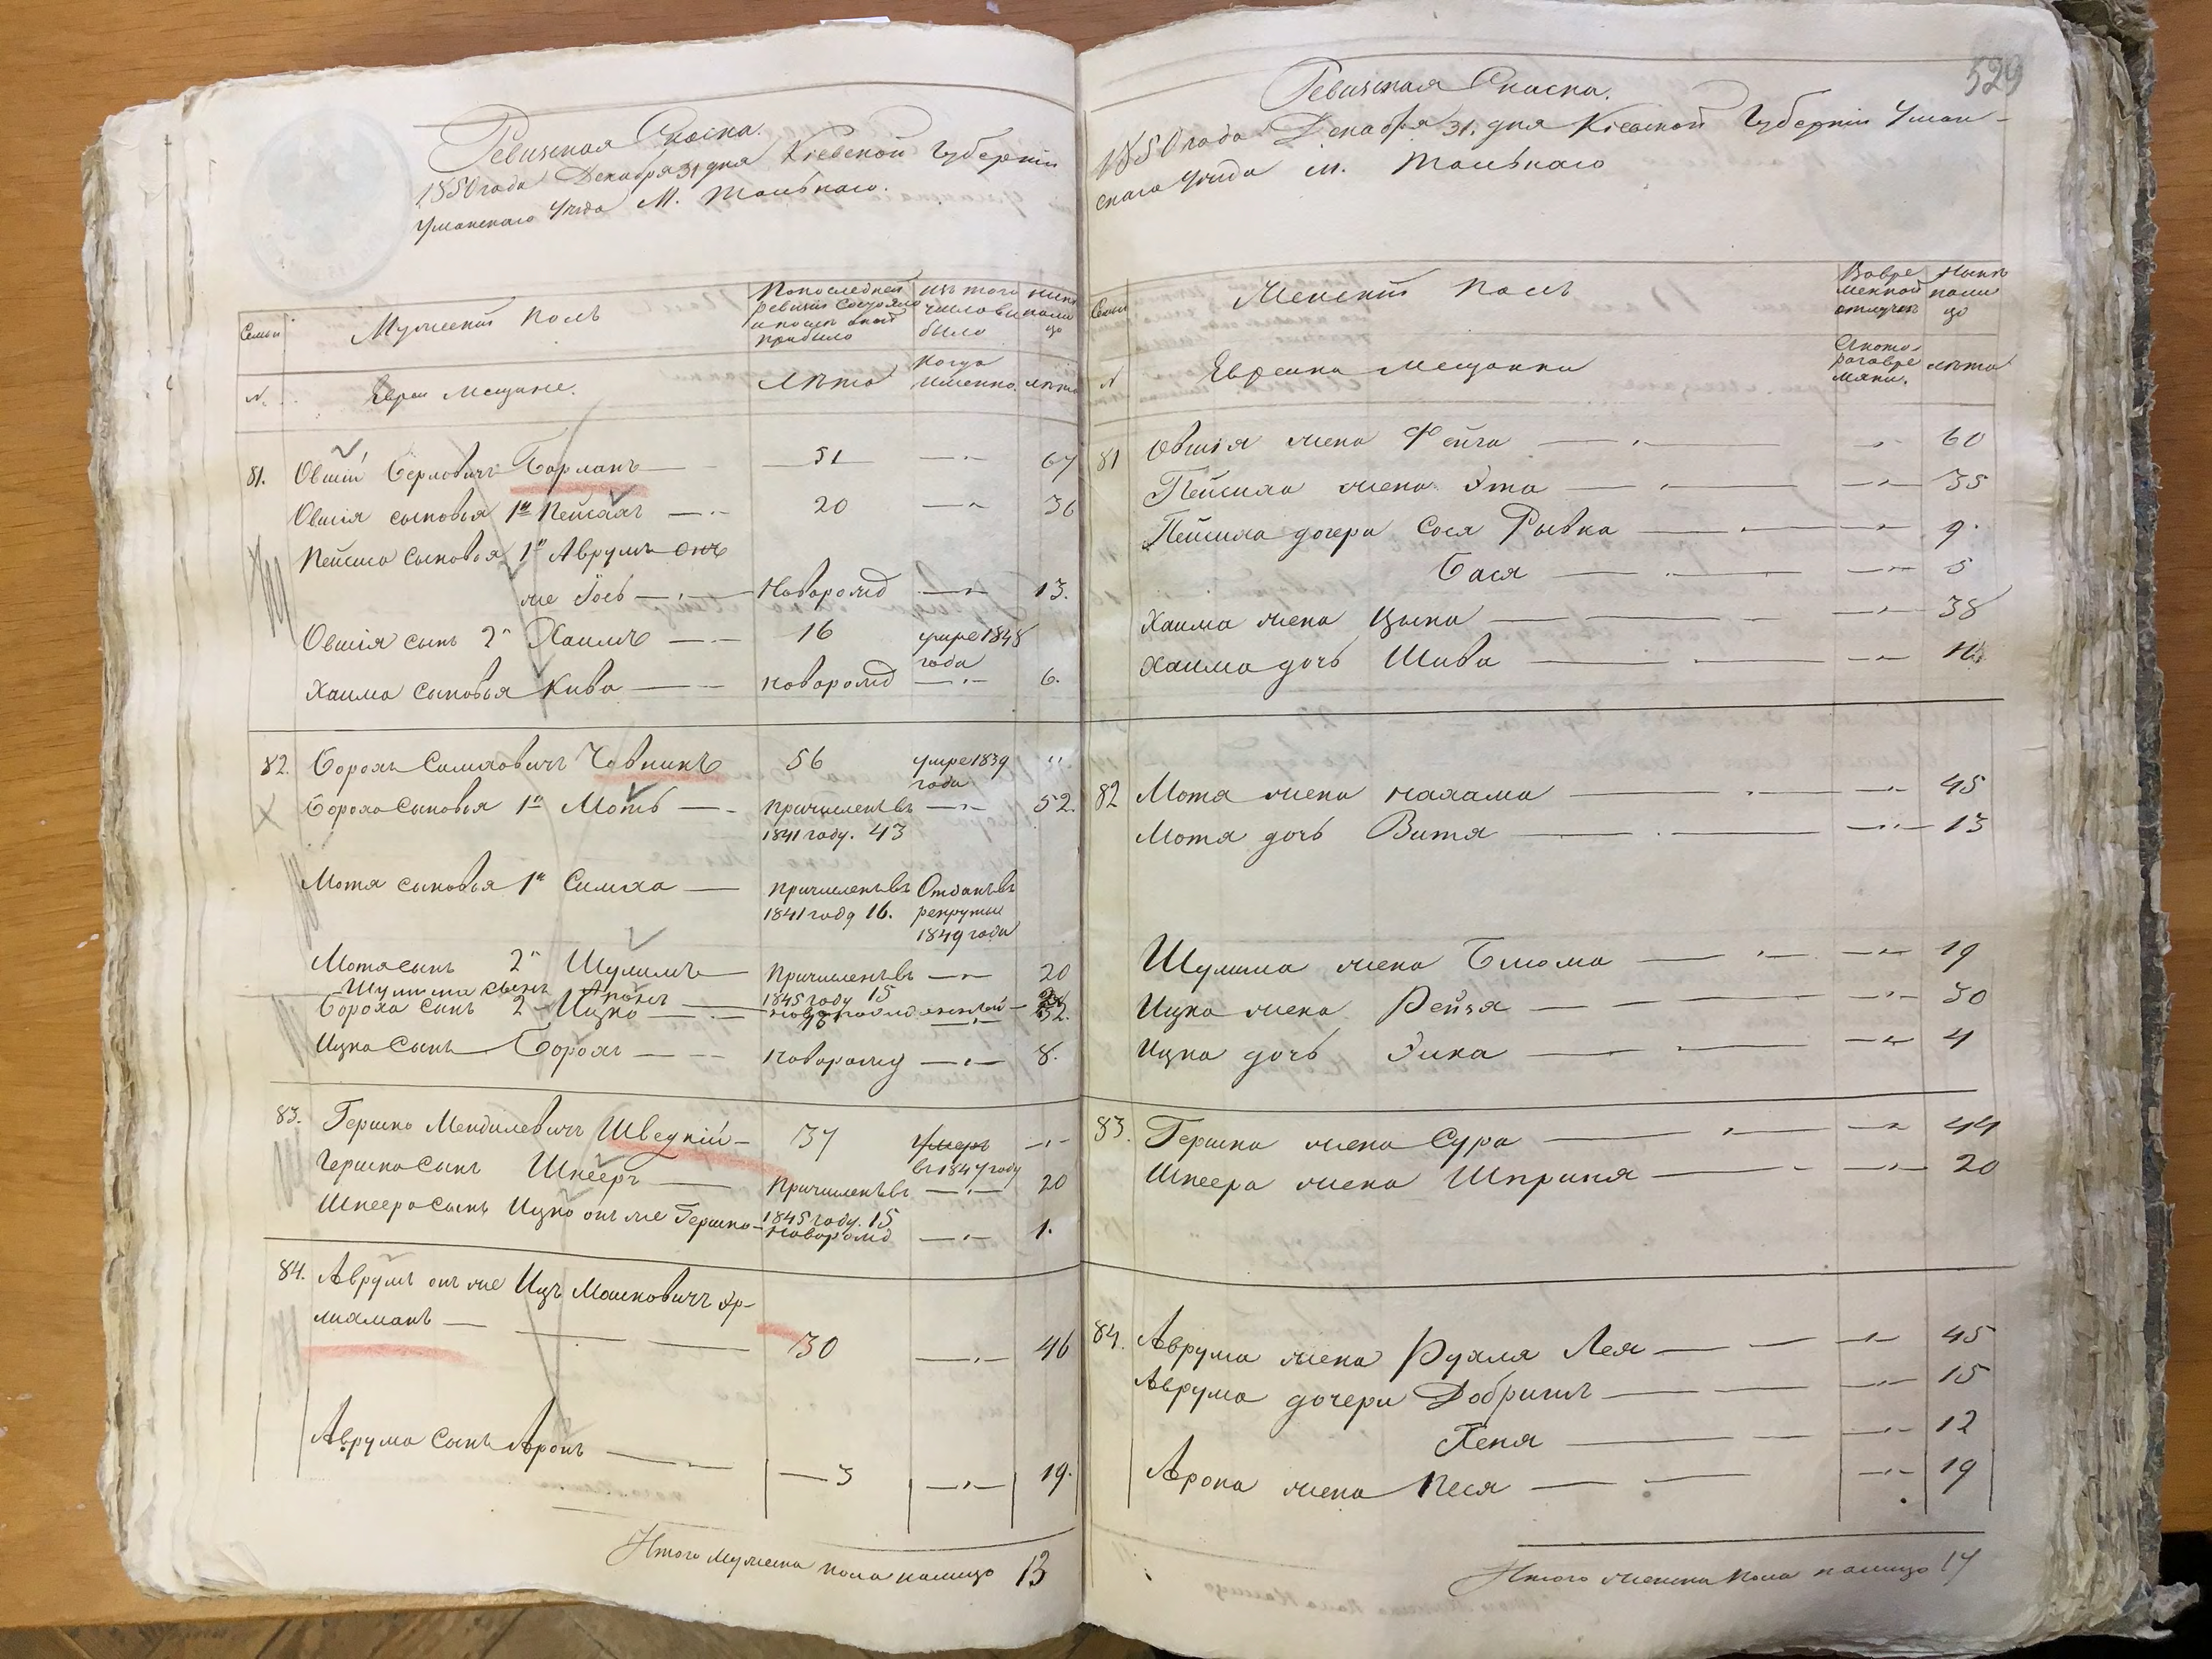 Ревизская Сказка.
1850 года Декабря 31 дня Кіевской Губерніи
Уманскаго Уезда М. Тальнаго.
Семьи
Мужескій полъ
По последней
ревизіи состояло
и после оной
прибыло
Изъ того
числа вы
было
Ныне
нали
цо
№.
Евреи Мещане.
Лета
Когда
именно.
лета
81. Овшій Берловичъ Барланъ 51 67
Овшія сыновья 1й Пейсахъ 20 36
Пейсиха сыновья 1й Аврумъ онъ
же Іось Новорожд 13.
Овшія сынъ 2й Хаимъ 16 умре 1848
года
Хаима сыновья Кива Новорожд 6.
82. Борохъ Симховичъ Човникъ 56 умре 1839 "
года
Бороха сыновья 1й Моть причисленъ въ 52.
1841 году. 43
Мотя сыновья 1й Симха причисленъ въ Отданъ въ
1841 году 16. рекруты
1849 года
Мотя сынъ 2й Шулимъ Причисленъ въ 20
1845 году 15
Шулима сынъ Аронъ новорожденный
Бороха сынъ 2й Ицко 32.
Ицка сынъ Борохъ Новорожд 8.
83. Гершко Мендилевичъ Шведкій 37 Умеръ
въ 1847 году
Гершка сынъ Шнееръ Причисленъ въ 20
1845 году. 15
Шнеера сынъ Ицко онъ же Гершко Новорожд 1.
84. Аврумъ онъ же Ицъ Мошковичъ Ор-
лихманъ 30 46
Аврума сынъ Аронъ 3 19.
Итого мужеска пола налицо 13
529
Ревизская Сказка.
1850 года Декабря 31. дня Кіевской Губерніи Уман-
скаго Уезда м. Тальнаго
Семьи
Женскій полъ
Во вре
менной
отлучке
Ныне
нали
цо
№
Еврейки Мещанки
Съ кото
раго вре
мяни.
лета
81 Овшія жена Фейга 60
Пейсиха жена Эта 35
Пейсиха дочери Сося Рывка 9.
Бася 5
Хаима жена Цыпа 38
Хаима дочь Шива
82 Мотя жена Нахама 45
Мотя дочь Витя 13
Шулима жена Блюма 19
Ицка жена Рейзя 30
Ицка дочь Эйка 4
83. Гершка жена Сура 44
Шнеера жена Шприня 20
84. Аврума жена Рухля Лея 45
Аврума дочери Добришъ 15
Геня 12
Арона жена Песя 19
Итого женска пола налицо 17